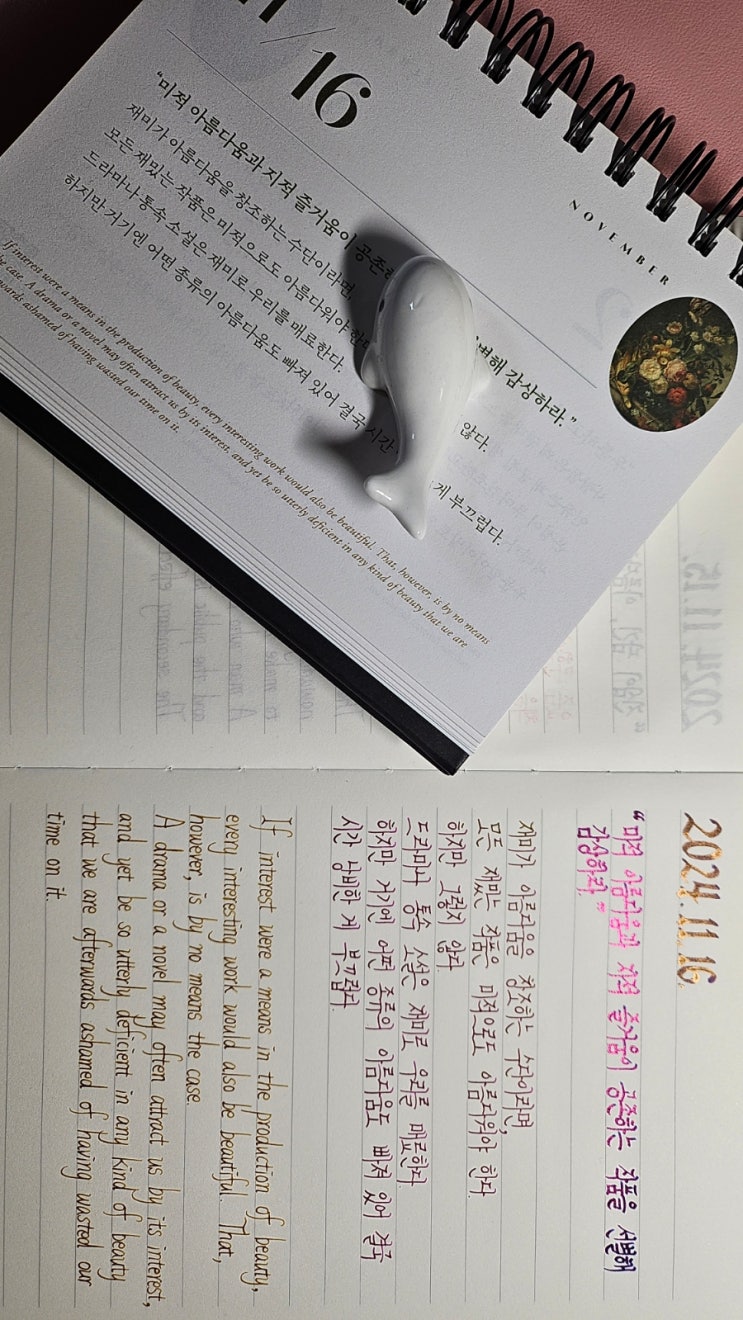 11/16
NOVEMBER
"미적 아름다움과 지적 즐거움이 공존하 별해 감상하라."
재미가 아름다움을 창조하는 수단이라면,
모든 재밌는 작품은 미적으로도 아름다워야 한다 않다.
드라마나 통속 소설은 재미로 우리를 매료한다.
하지만 거기엔 어떤 종류의 아름다움도 빠져 있어 결국 시간 게 부끄럽다.
If interest were a means in the production of beauty, every interesting work would also be beautiful. That, however, is by no means
the case. A drama or a novel may often attract us by its interest, and yet be so utterly deficient in any kind of beauty that we are
afterwards ashamed of having wasted our time on it.
2024.11.15.
2024.11.16.
"미적 아름다움과 지적 즐거움이 공존하는 작품을 선별해
감상하라."
재미가 아름다움을 창조하는 수단이라면,
모든 재밌는 작품은 미적으로도 아름다워야 한다.
하지만 그렇지 않다.
드라마나 통속 소설은 재미로 우리를 매료한다.
하지만 거기엔 어떤 종류의 아름다움도 빠져 있어 결국
시간 낭비한 게 부끄럽다.
If interest were a means in the production of beauty,
every interesting work would also be beautiful. That,
however, is by no means the case.
A drama or a novel may often attract us by its interest,
and yet be so utterly deficient in any kind of beauty
that we are afterwards ashamed of having wasted our
time on it.